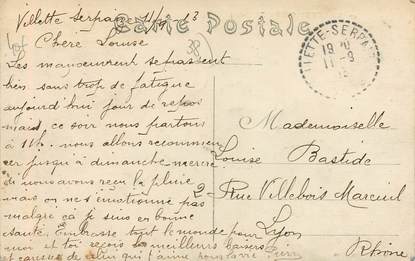 Villette Serpaize 11/9 3
Carte Postale
Chère Louise
Les manœuvrent se passent
très sans trop de fatigue
aujourd'hui jour de repos
mais ce soir nous partons
à 11h. nous allons recommencer
jusqu'à dimanche
nous avons reçu la pluie
mais on ne s'émotionne pas
malgré ça je suis en bonne
santé. Embrasse tout le monde pour
moi et toi reçois les meilleurs baisers
de celui qui t'aime
VILLETTE-SERPAIZE
19
11-9
Mademoiselle
Louise Bastide
2 Rue Villebois Mareuil
Lyon
Rhône